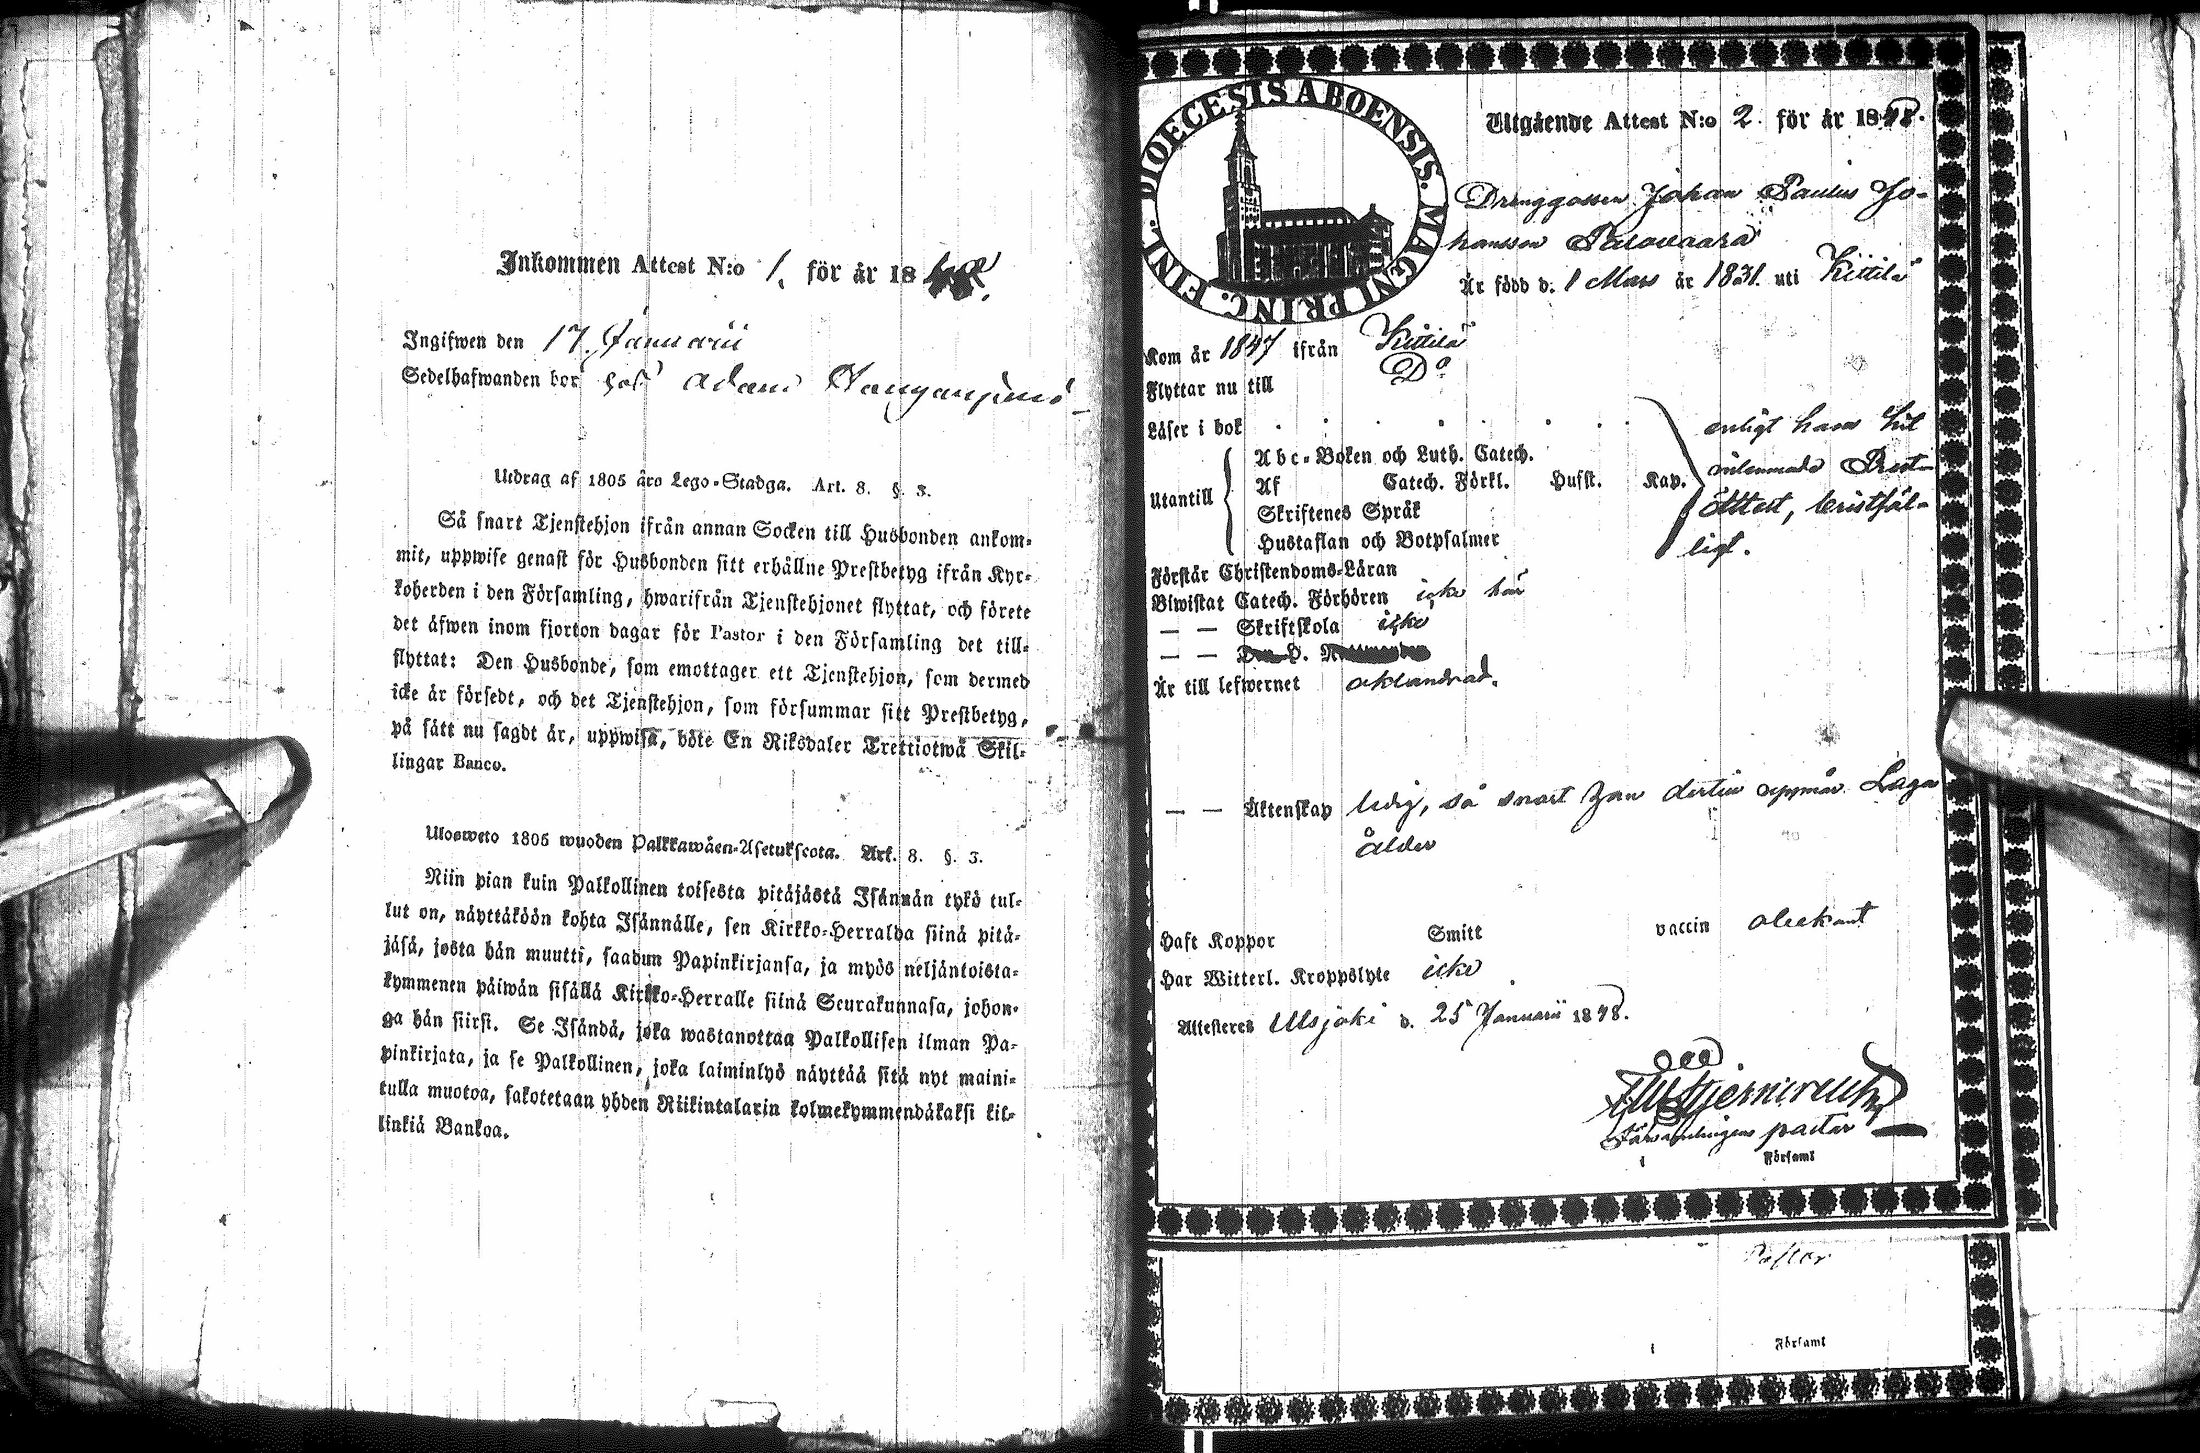 Inkommen Attest N:o 1. för år 1848.
Ingifwen den 17 Januarii
Sedelhafwanden bor hos Adam
Utdrag af 1805 års Lego-Stadga. Art. 8. §. 3.
Så snart Tjenstehjon ifrån annan Socken till Husbonden ankom-
mit, uppwise genast för Husbonden sitt erhållne Prestbetyg ifrån Kyr-
koherden i den Församling, hwarifrån Tjenstehjonet flyttat, och förete
det äfwen inom fjorton dagar för Pastor i den Församling det till-
flyttat: Den Husbonde, som emottager ett Tjenstehjon, som dermed
icke är försedt, och det Tjenstehjon, som försummar sitt Prestbetyg,
på sätt nu sagdt är, uppwisa, böte En Riksdaler Trettiotwå Skil-
lingar Banco.
Ulosweto 1805 wuoden Palkkawäen-Asetuksesta. Art. 8. §. 3.
Niin pian kuin Palkollinen toisesta pitäjästä Isännän tykö tul-
lut on, näyttäköön kohta Isännälle, sen Kirkko-Herralda siinä pitä-
jäsä, josta hän muutti, saadun Papinkirjansa, ja myös neljäntoista-
kymmenen päiwän sisällä Kirkko-Herralle siinä Seurakunnasa, johon-
ga hän siirsi. Se Isändä, joka wastanottaa Palkollisen ilman Pa-
pinkirjata, ja se Palkollinen, joka laiminlyö näyttää sitä nyt maini-
tulla muotoa, sakotetaan yhden Riikintalarin kolmekymmendäkaksi kil-
linkiä Bankoa.
FINL. DIOECESIS ABOENSIS. MAGNI PRINC.
Utgående Attest N:o 2. för år 1848.
Drenggossen Johan Paulus Jo-
hansson Palovaara
Är född d. 1 Mars år 1831. uti Kittilä
Kom år 1847 ifrån Kittilä
Flyttar nu till Do
Läser i bok
Utantill
Abc-Boken och Luth. Catech.
Af Catech. Förkl. Husst. Kap.
Skriftenes Språk
Hustaflan och Botpsalmer
enligt hans hit
inlemnade Prest-
Attest, bristfäl-
ligt.
Förstår Christendoms-Läran
Biwistat Catech. Förhören icke här
— — Skriftskola icke
Är till lefwernet oklandrad.
— — Äktenskap ledig, så snart han dertill uppnår Laga
ålder
Haft Koppor Smitt vaccin obekant
Har Witterl. Kroppslyte icke
Attesteres Utsjoki d. 25 Januarii 1848.
Församlingens pastor
i Församl
Pastor
i Församl